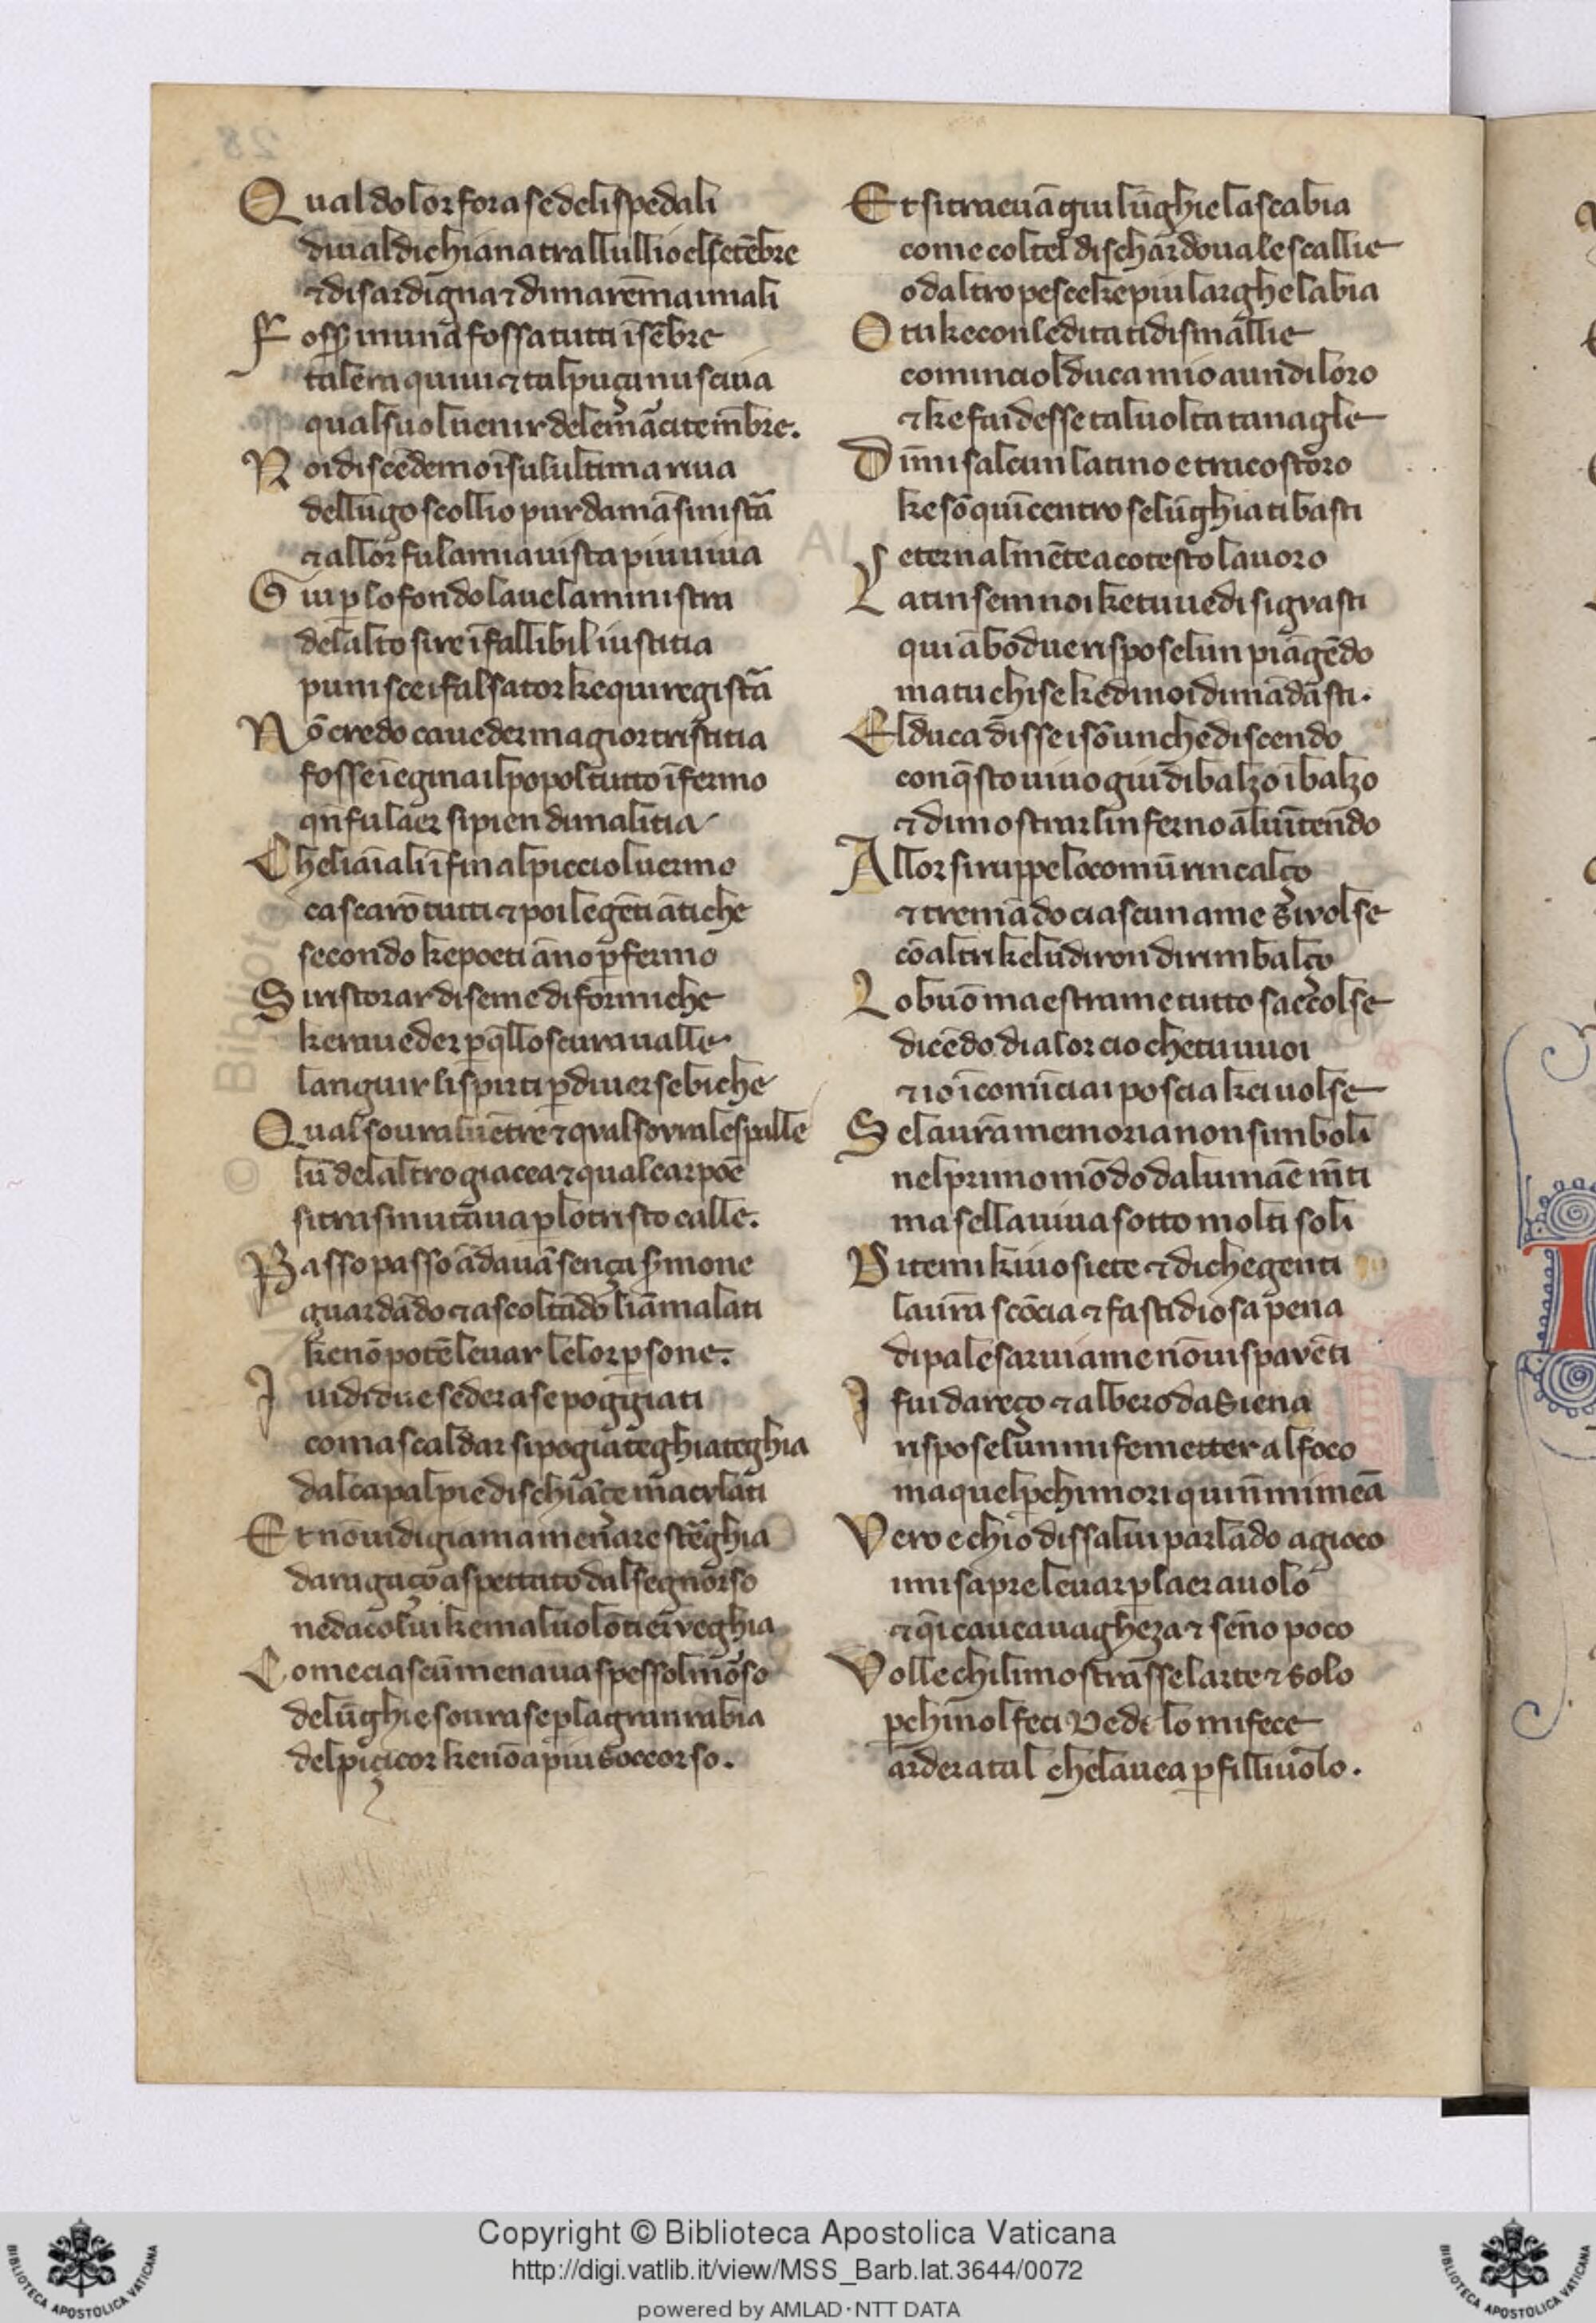 Qual dolor fora se deli spedali
di ual dichiana tral lullio el setēbre
⁊ di sardigna ⁊ di maremma i mali
Fosser in una fossa tutti īsēbre
tal era quiui ⁊ tal puço nusciua
qual suol uenir dele marcite mēbre.
Noi discēdemo ī su lultima riua
del lūgo scollio pur da mā sinistra
⁊ allor fu la mia uista piu uiua
Giu p lo fondo la ue la ministra
del alto sire īfallibil iustitia
punisce i falsator ke qui registra
Nō credo ca ueder magior tristitia
fosse ī egina il popol tutto īfermo
qn fu laer si pien di malitia
Che li aīali īfin al picciol uermo
cascarō tutti ⁊ poi le gēti ātiche
secondo ke poeti āno p fermo
Si ristorar di seme di formiche
kera ueder p qlla oscura ualle
languir li spirti p diuerse biche
Qual soura l uētre ⁊ qual sovra le spalle
lū del altro giacea ⁊ qual carpōe
si trasmutaua p lo tristo calle.
Passo passo ādauā sença sermone
guardādo ⁊ ascoltādo li āmalati
ke nō potē leuar le lor psone.
I uidi due seder a se poggiati
com a scaldar si pogia teghia a teghia
dal capo al pie di schiāçe macvlati
Et nō uidi gia mai menare streghia
da ragaço aspettato dal segnorso
ne da colui ke mal uolōtier veghia
Come ciascū menaua spesso l morso
de lūghie soura se p la gran rabia
del piçicor ke nō a piu soccorso.
Et si traeuā giu lūghie la scabia
come coltel di schardoua le scallie
o daltro pesce ke piu larghe labia
O tu ke con le dita ti dismallie
comincio l duca mio a un di loro
⁊ ke fai desse taluolta tanaglie
Dinni salcun latino e tra costoro
ke sō quincentro se lūghia ti basti
eternalmēte a cotesto lauoro
Latin sem noi ke tu uedi si gvasti
qui ābodue rispose lun piāgēdo
ma tu chi se ke di noi dimādasti.
El duca disse i sō un che discendo
con qsto uiuo giu di balzo ī balzo
⁊ di mostrar linferno a lui ītendo
Allor si ruppe lo comū rincalço
⁊ tremādo ciascun a me si volse
cō altri ke ludiron di rimbalço
Lo buō maestro a me tutto saccolse
dicēdo di a lor cio che tu uuoi
⁊ io īcomīciai poscia kei uolse
Se la uostra memoria non sinboli
nel primo mōdo da lumāe mēti
ma sella uiua sotto molti soli
Ditemi ki uo siete ⁊ di che genti
la uostra scōcia ⁊ fastidiosa pena
di palesarui a me nō ui spavēti
I fui dareço ⁊ albero da Siena
rispose lun mi fe metter al foco
ma quel p chi mori qui nō mi mena
Vero e chio dissi a lui parlādo a gioco
i mi sapre leuar p laer a uolo
⁊ qi caue a uaghezza ⁊ seno poco
Volle chi li mostrasse larte ⁊ Solo
p chi nol feci Dedalo mi fece
arder a tal che lauea p filliuolo.
Copyright © Biblioteca Apostolica Vaticana
http://digi.vatlib.it/view/MSS_Barb.lat.3644/0072
powered by AMLAD·NTT DATA